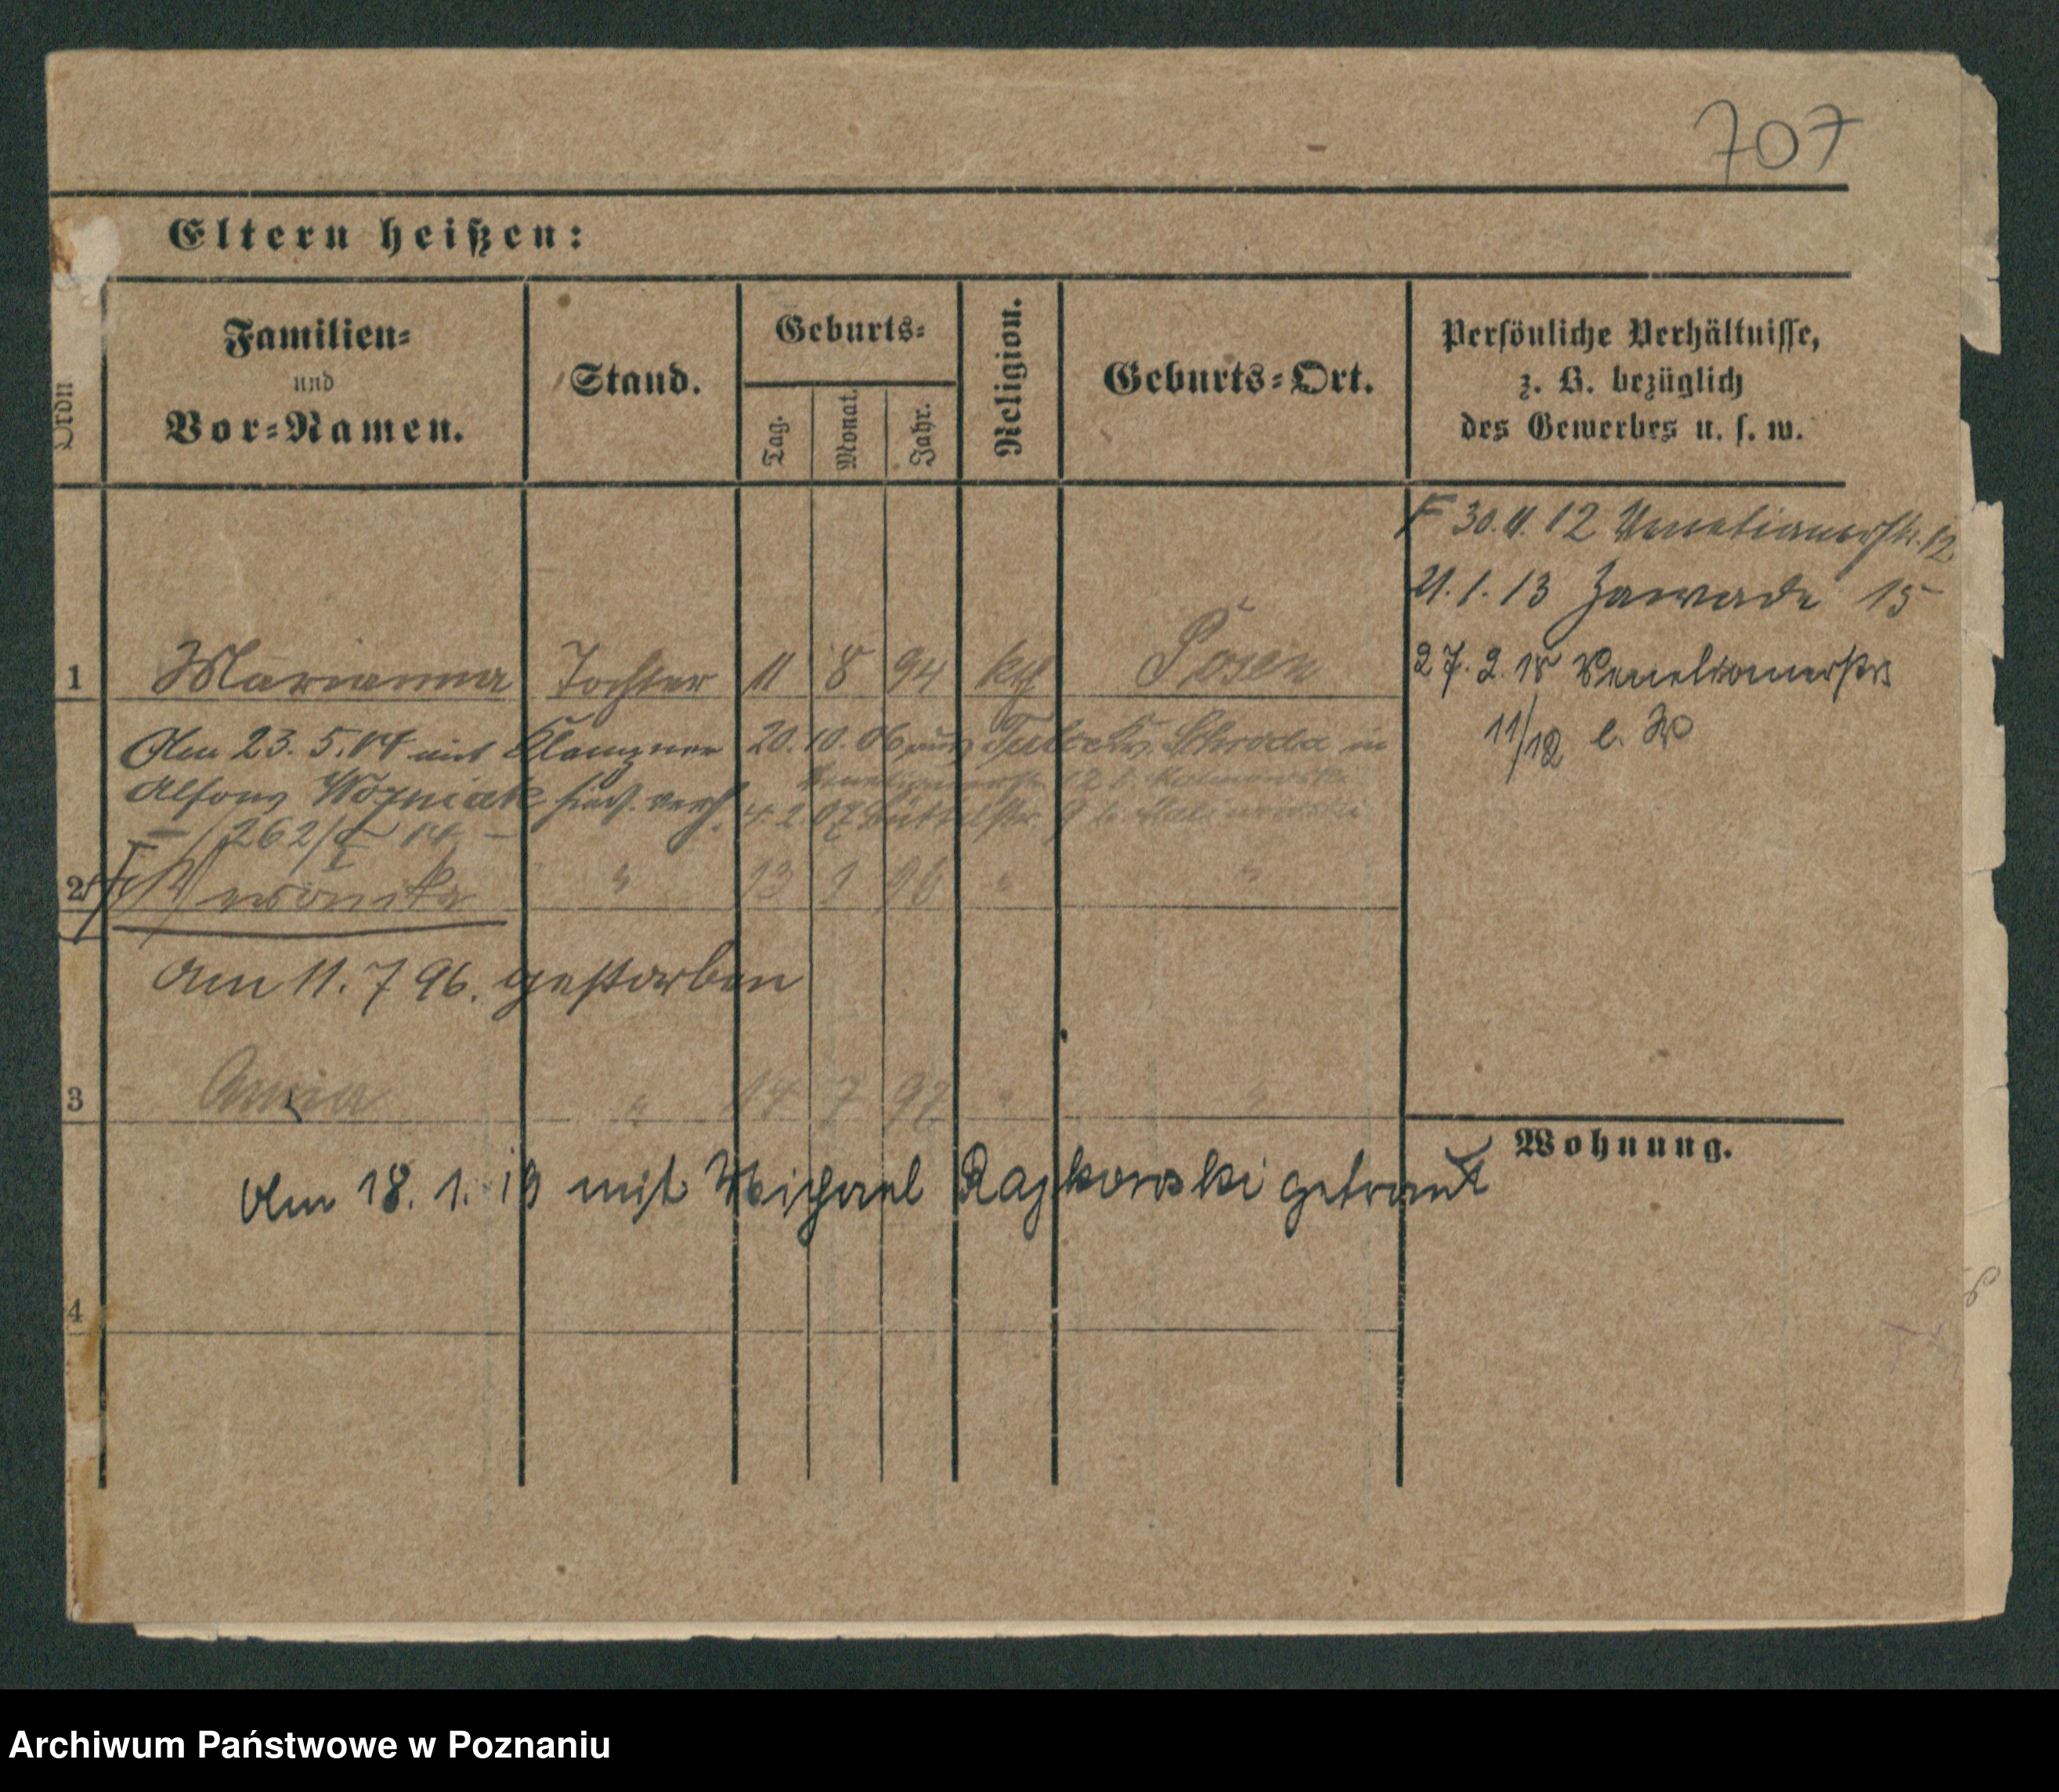 707
Eltern heißen:
Ordn
Familien=
und
Vor=Namen.
Stand.
Geburts=
Tag.
Monat.
Jahr.
Religion.
Geburts=Ort.
Persönliche Verhältnisse,
z. B. bezüglich
des Gewerbes u. s. w.
F 30.11.12 Venetianerstr. 12
21.1.13 Zawade 15
27.2.18 Venetianerstr
11/12 b.
1 Marianna Tochter 11 8 94 kth Posen
Am 23.5.14 mit Klempner 20.10.06 aus Kr. Schroda in
Alfons Wozniak verh. 4.2.07 Büttelstr. 9 b. Malinowski
262/ 14
2 Veronika " 13 1 96 " "
Am 11.7 96. gestorben
3 Anna " 14 7 97 " "
Wohnung.
Am 18.1.19 mit Michael Rajkowski getraut
4
Archiwum Państwowe w Poznaniu